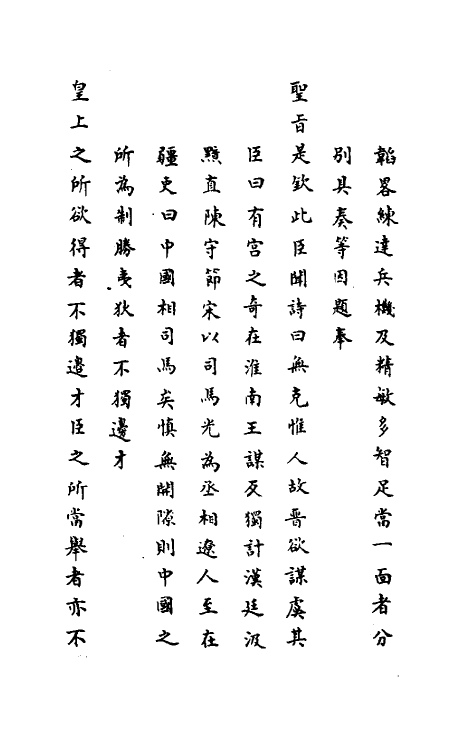 韜畧練達兵機及精敏多智足當一面者分
別具奏等因題奉
聖旨是欽此臣聞詩曰無克惟人故晋欲謀虞其
臣曰有宫之奇在淮南王謀反獨計漢廷汲
黯直陳守節宋以司馬光為丞相遼人至在
疆吏曰中國相司馬矣慎無開隙則中國之
所為制勝夷狄者不獨邊才
皇上之所欲得者不獨邊才臣之所當舉者亦不